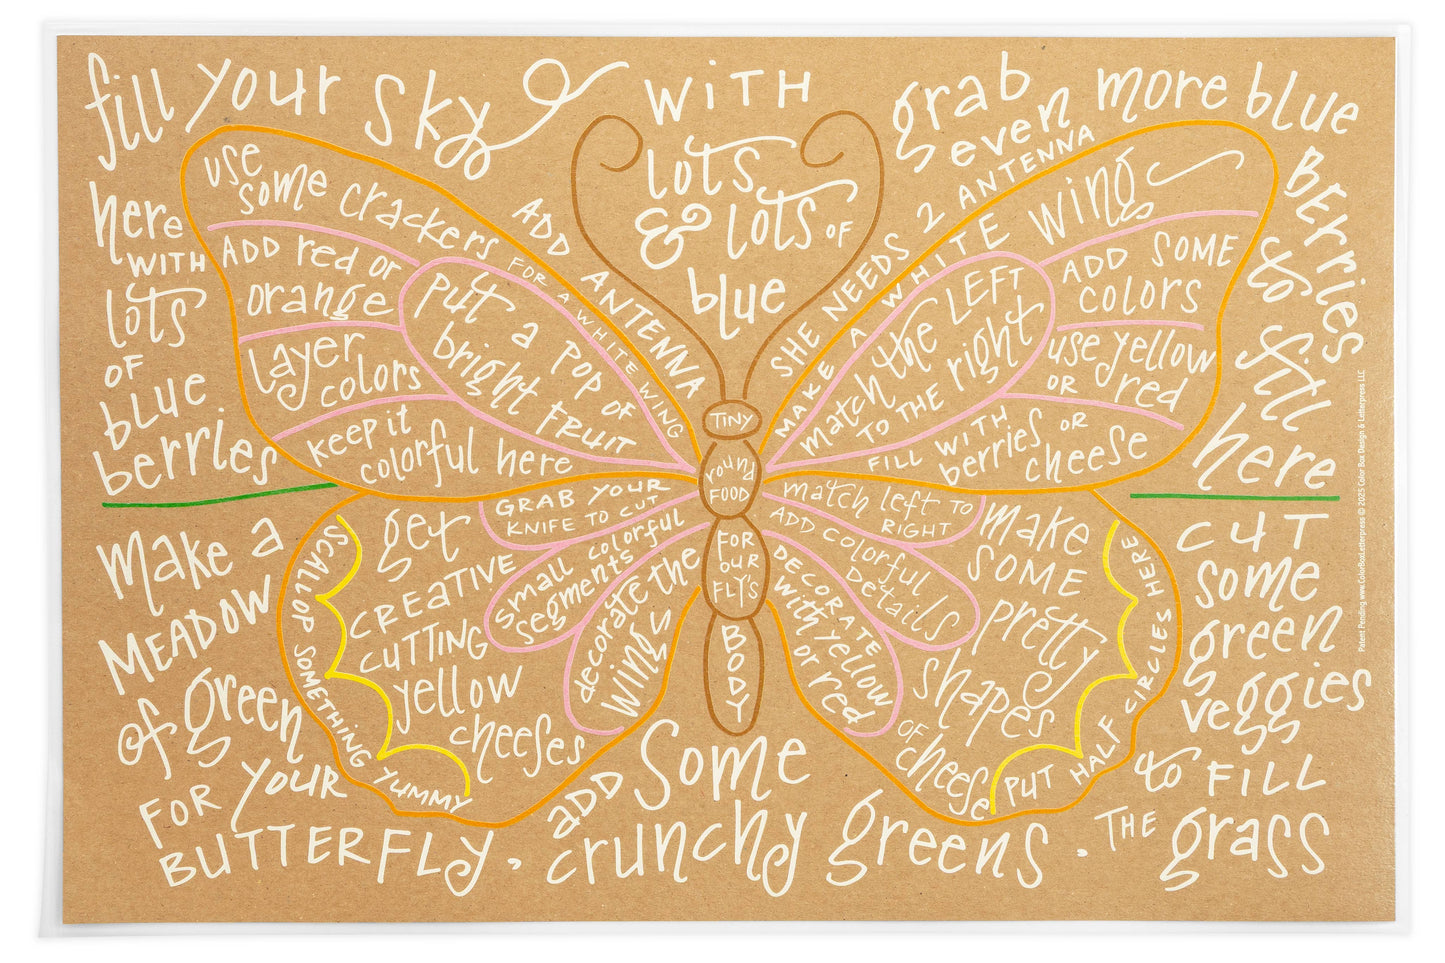 fill your sky
WITH
lots
& lots OF
blue
grab
even
more blue
BERRIES
to fill
here
here
WITH
lots
OF
blue
berries
use
some crackers
FOR A WHITE WING
ADD ANTENNA
ADD red or
orange
layer
colors
keep it
colorful here
put a pop of
bright fruit
SHE NEEDS 2 ANTENNA
MAKE A WHITE WING
match the LEFT
TO THE right
ADD SOME
colors
use yellow
OR red
FILL WITH
berries OR
cheese
TINY
round
FOOD
FOR
OUR
FLY'S
BODY
GRAB YOUR
KNIFE TO CUT
small colorful
segments
decorate the
wings
get
CREATIVE
CUTTING
yellow
cheeses
SCALLOP SOMETHING YUMMY
match left to
RIGHT
ADD colorful
Details
DECORATE
with yellow
or red
make
SOME
pretty
shapes
OF cheese
PUT HALF CIRCLES HERE
make a
MEADOW
of green
FOR your
BUTTERFLY,
ADD some
crunchy greens.
CUT
some
green
veggies
to FILL
THE grass
Patent Pending www.ColorBoxLetterpress © 2025 Color Box Design & Letterpress LLC